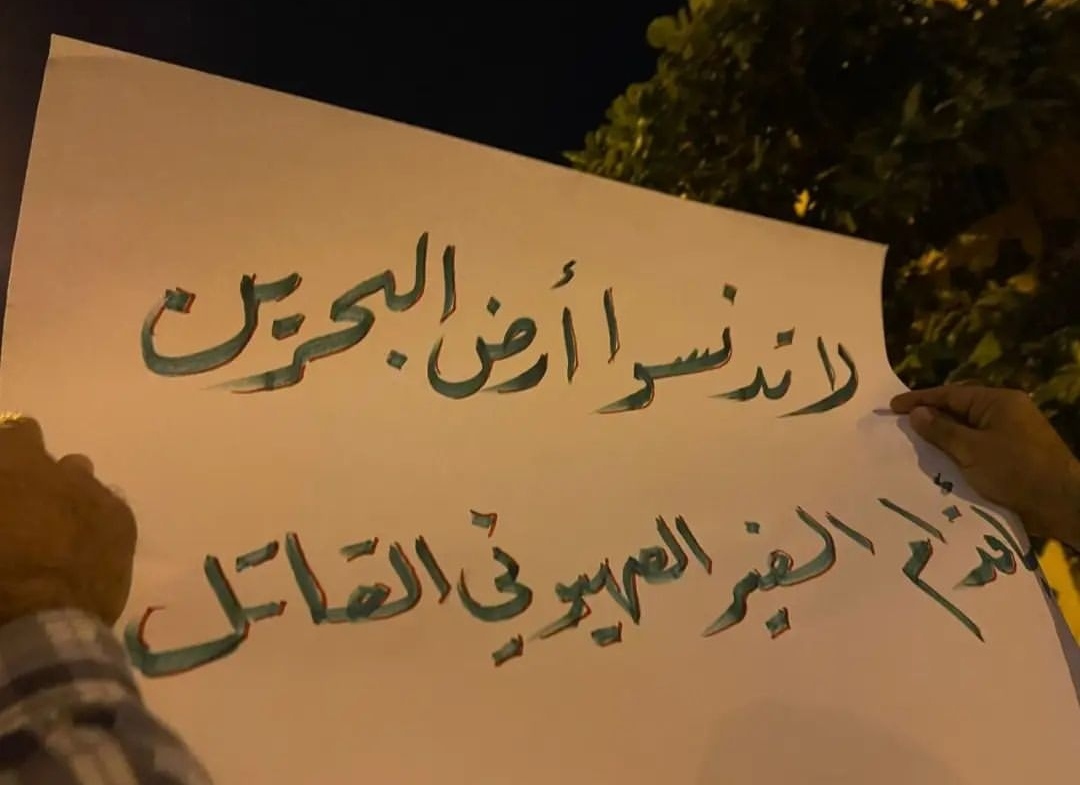 لا تدنسوا أرض البحرين
أقدام السفير الصهيوني القاتل